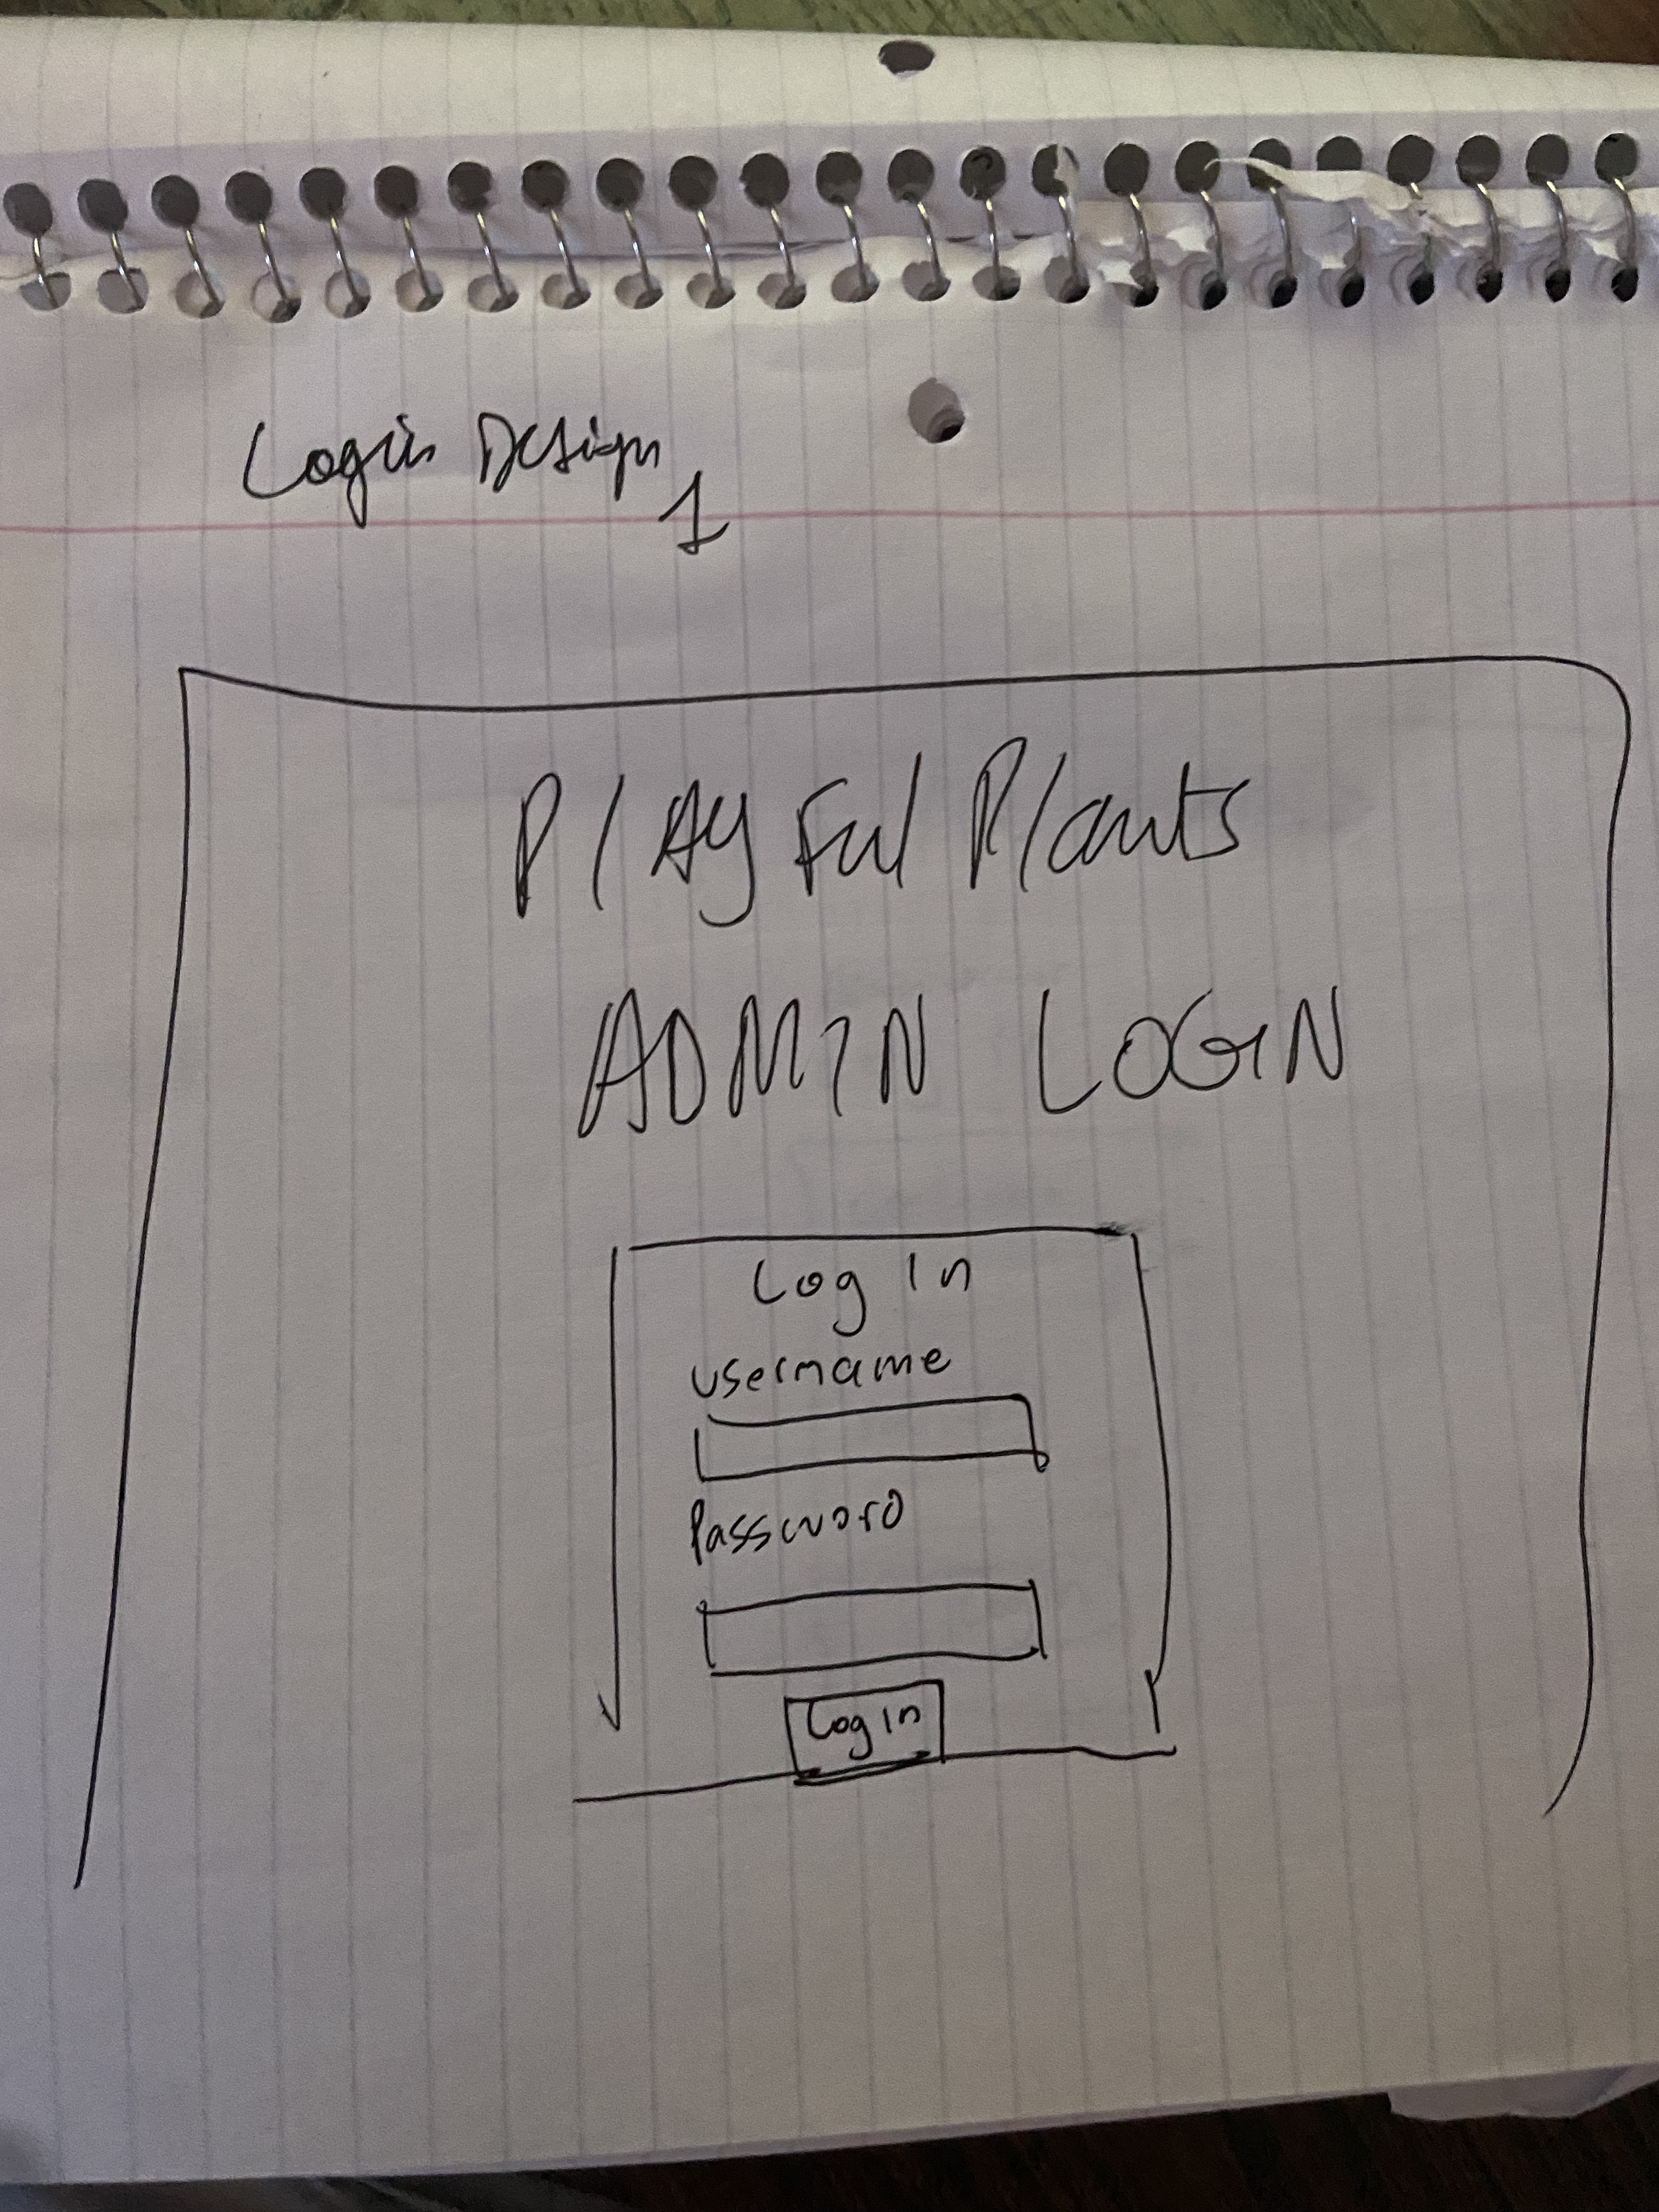 Login Design
1
PlAyFul Plants
ADMIN LOGIN
Log In
username
Password
Log in